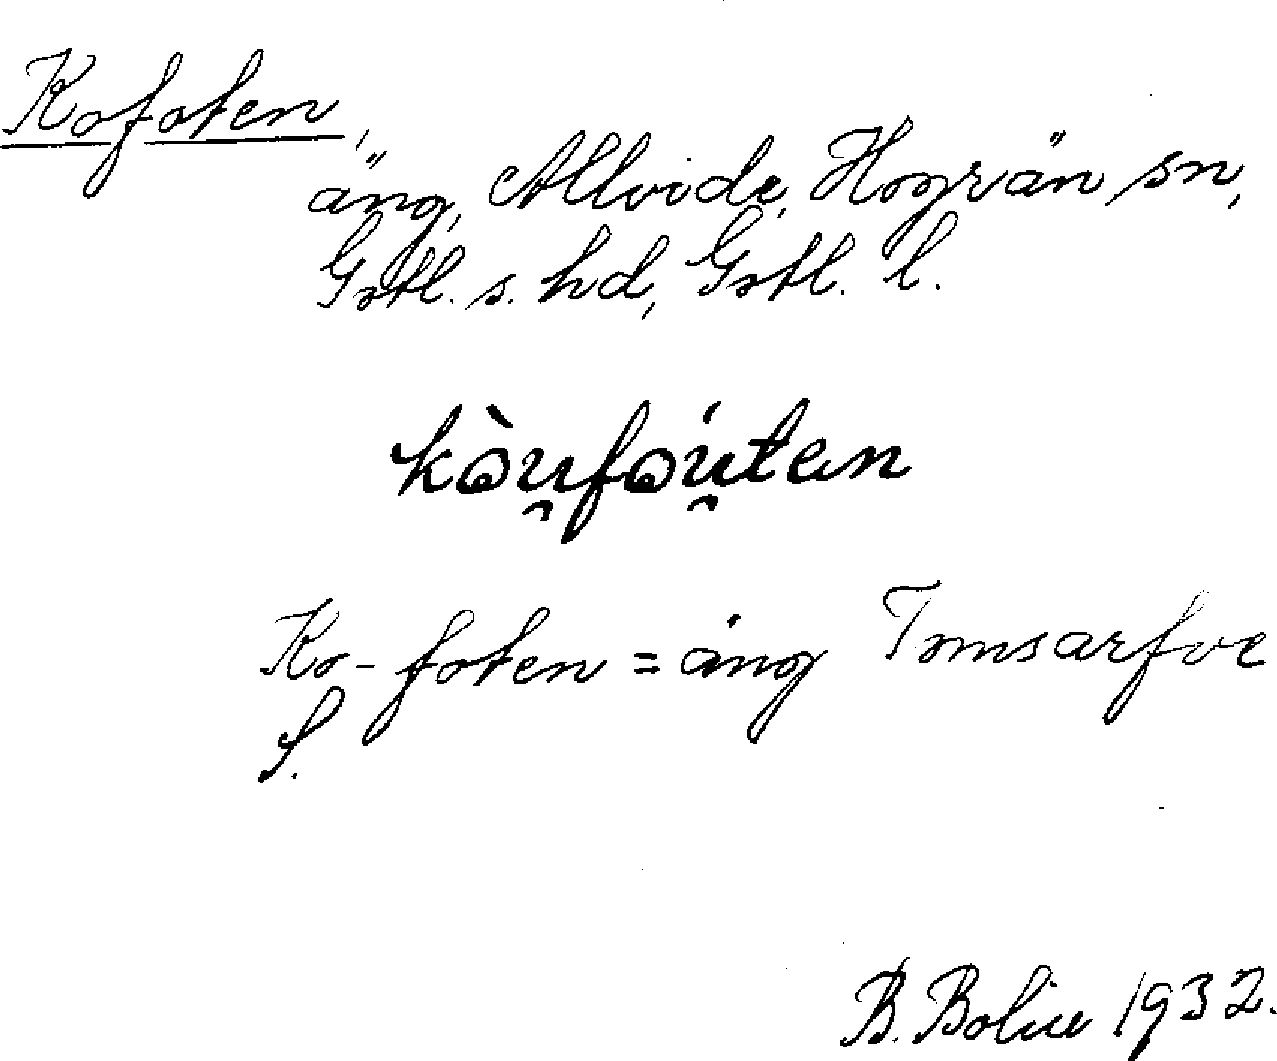 Kofoten,
äng, Allvide, Hogrän sn,
Gotl. s. hd, Gotl. l.
kòu̯fóu̯ten
Ko-foten = äng Tomsarfve
S.
B. Bolin 1932.